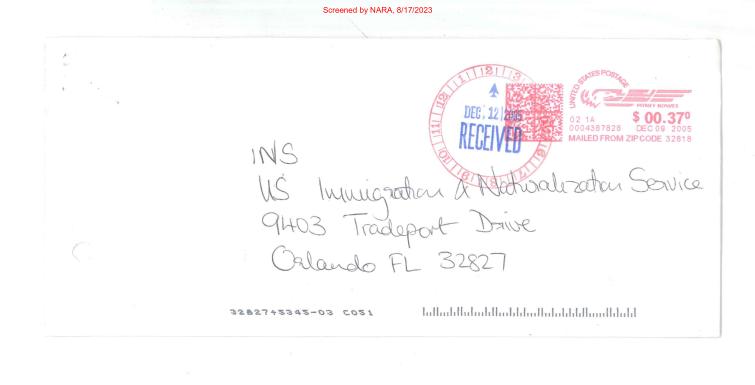 Screened by NARA, 8/17/2023
UNITED STATES POSTAGE
PITNEY BOWES
02 1A
$ 00.37⁰
0004387828
DEC 09 2005
MAILED FROM ZIP CODE 32818
DEC 12 2005
RECEIVED
INS
US Immigration & Naturalization Service
9403 Tradeport Drive
Orlando FL 32827
32827+5345-03 C051